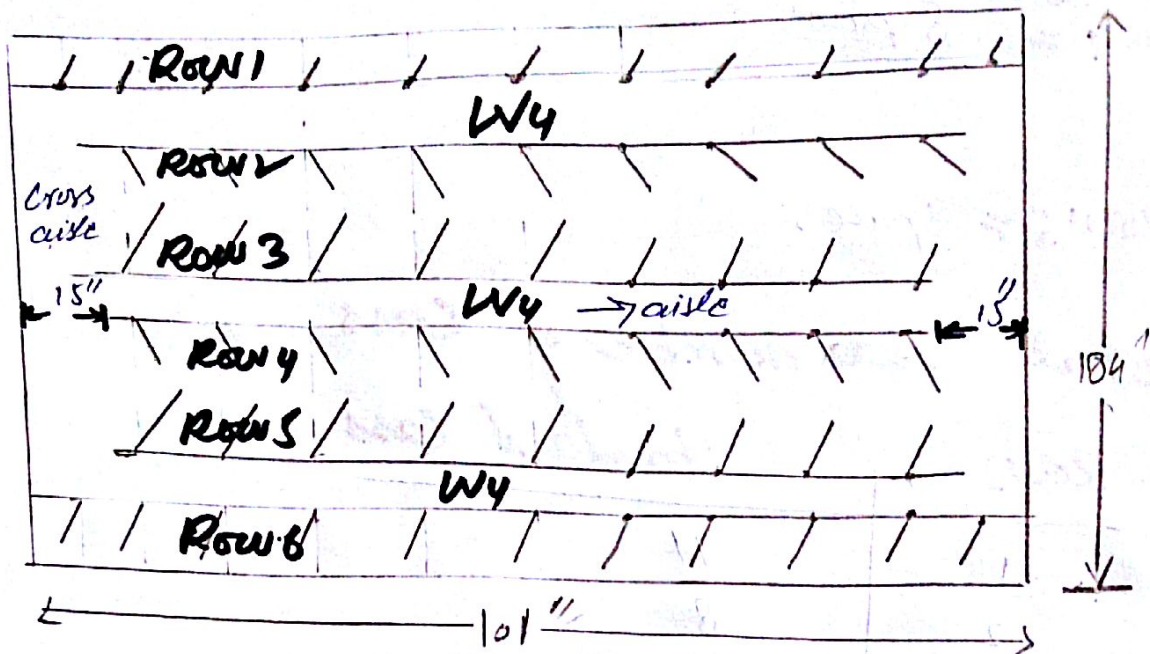 Row 1
W4
Row 2
Cross
aisle
Row 3
15"
W4 → aisle
15"
Row 4
184'
Row 5
W4
Row 6
101"